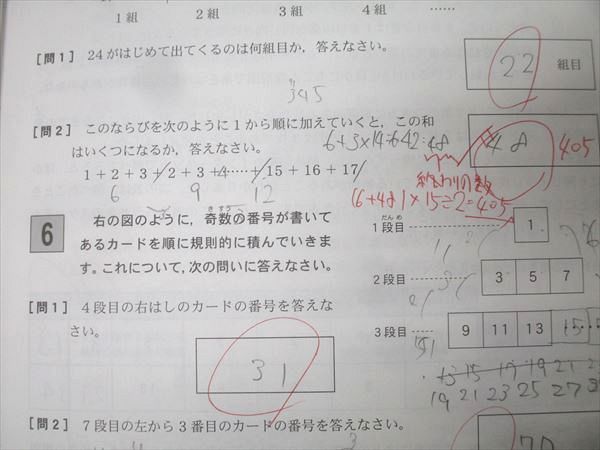 1組 2組 3組 4組 ……
［問1］ 24がはじめて出てくるのは何組目か，答えなさい。
22 組目
345
［問2］ このならびを次のように1から順に加えていくと，この和
はいくつになるか，答えなさい。
6+3×14=6+42=48
48
405
1＋2＋3＋2＋3＋4……＋15＋16＋17
6 9 12
終わりの数
(6+48)×15÷2=405
6 右の図のように，奇数の番号が書いて
きすう
あるカードを順に規則的に積んでいきま
す。これについて，次の問いに答えなさい。
だんめ
1段目 1
2段目 3 5 7
3段目 9 11 13 15
［問1］ 4段目の右はしのカードの番号を答えな
さい。
31
13 15 17 19 21
19 21 23 25 27
［問2］ 7段目の左から3番目のカードの番号を答えなさい。